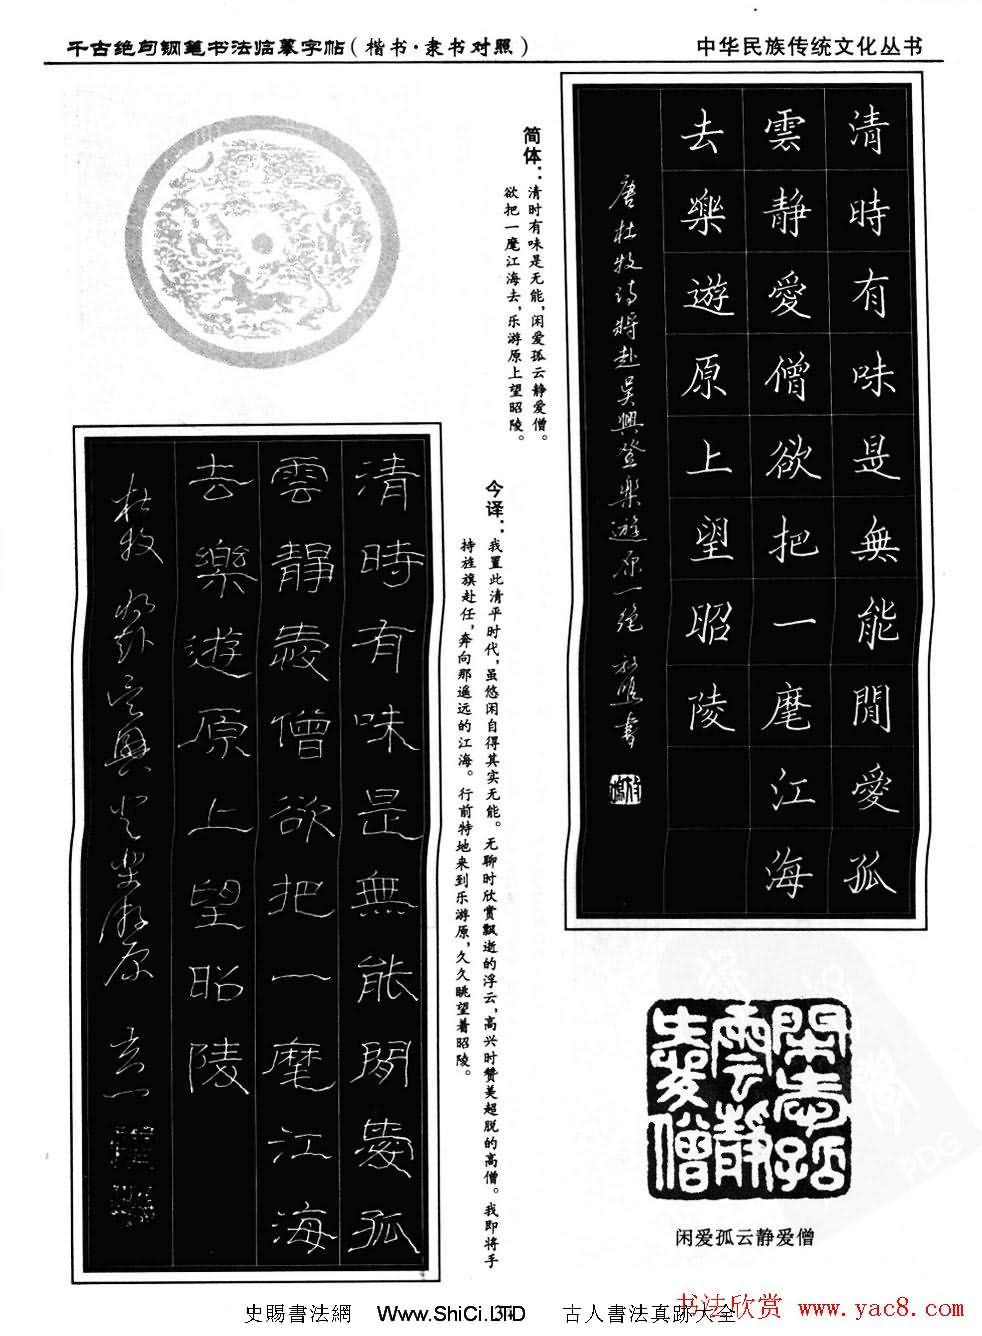 千古绝句钢笔书法临摹字帖（楷书·隶书对照）
中华民族传统文化丛书
清時有味是無能閒愛孤
雲靜愛僧欲把一麾江海
去樂遊原上望昭陵
唐杜牧诗將赴吴興登樂遊原一绝
简体：清时有味是无能，闲爱孤云静爱僧。
欲把一麾江海去，乐游原上望昭陵。
今译：我置此清平时代，虽悠闲自得其实无能。无聊时欣赏飘逝的浮云，高兴时赞美超脱的高僧。我即将手
持旌旗赴任，奔向那遥远的江海。行前特地来到乐游原，久久眺望着昭陵。
清時有味是無能閒愛孤
雲靜愛僧欲把一麾江海
去樂遊原上望昭陵
杜牧將赴吴興登樂游原
閑愛孤
雲静
愛僧
闲爱孤云静爱僧
PDG
史賜書法網 Www.ShiCi.LTD 古人書法真跡大全
书法欣赏 www.yac8.com